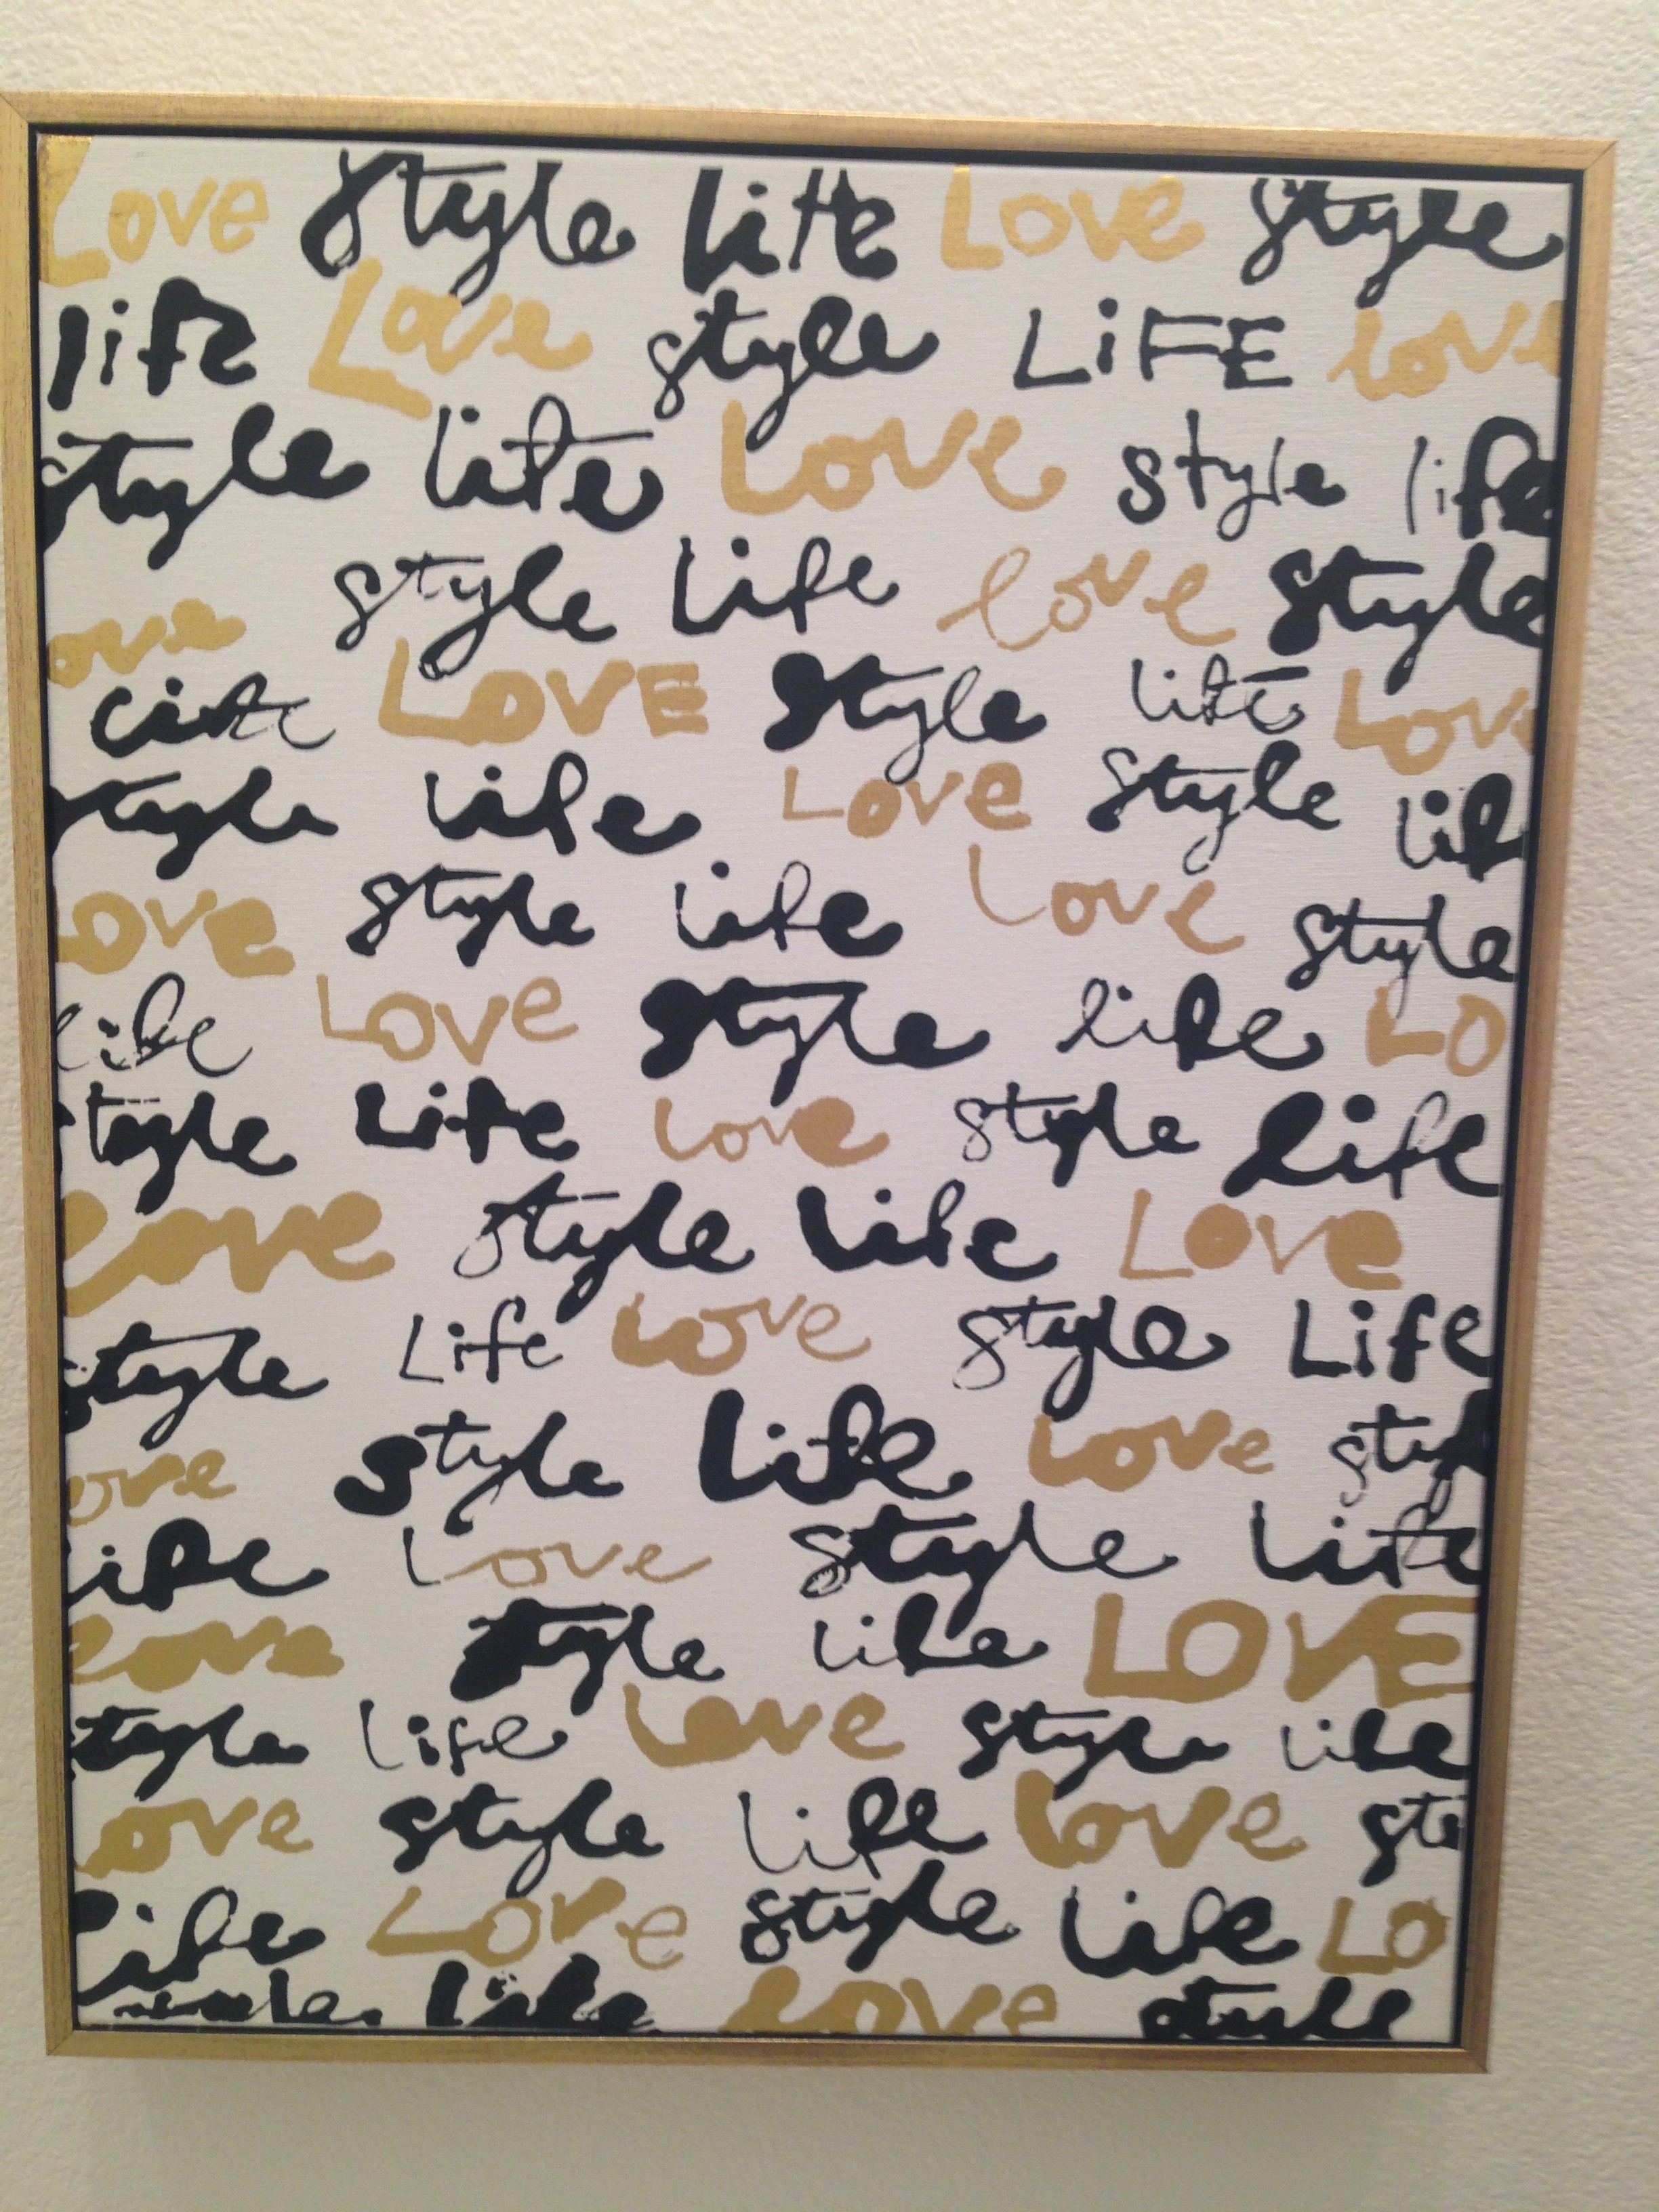 Love style life Love style
life Love style LiFE love
style life Love style life
ove style Life love style
Life LOVE style life Lov
style life Love style lif
Love style life Love style
life Love style life LO
style Life Love style life
Love style life Love
style Life Love style Life
ove style Life Love styl
life Love style Life
Love style life LOVE
style Life Love style life
Love style Life Love sty
life Love style life LO
life Love style